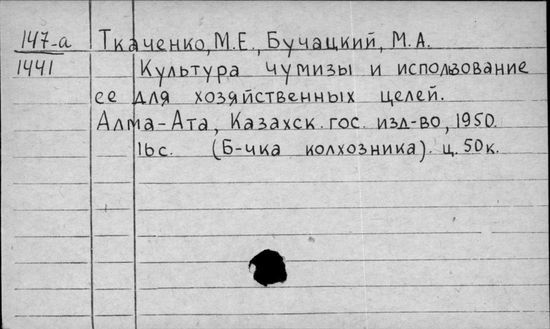 147-а Ткаченко, М.Е., Бучацкий, М.А.
1441 Культура чумизы и использование
ее для хозяйственных целей.
Алма-Ата, Казахск. гос. изд-во, 1950.
16с. (Б-чка колхозника). ц. 50к.